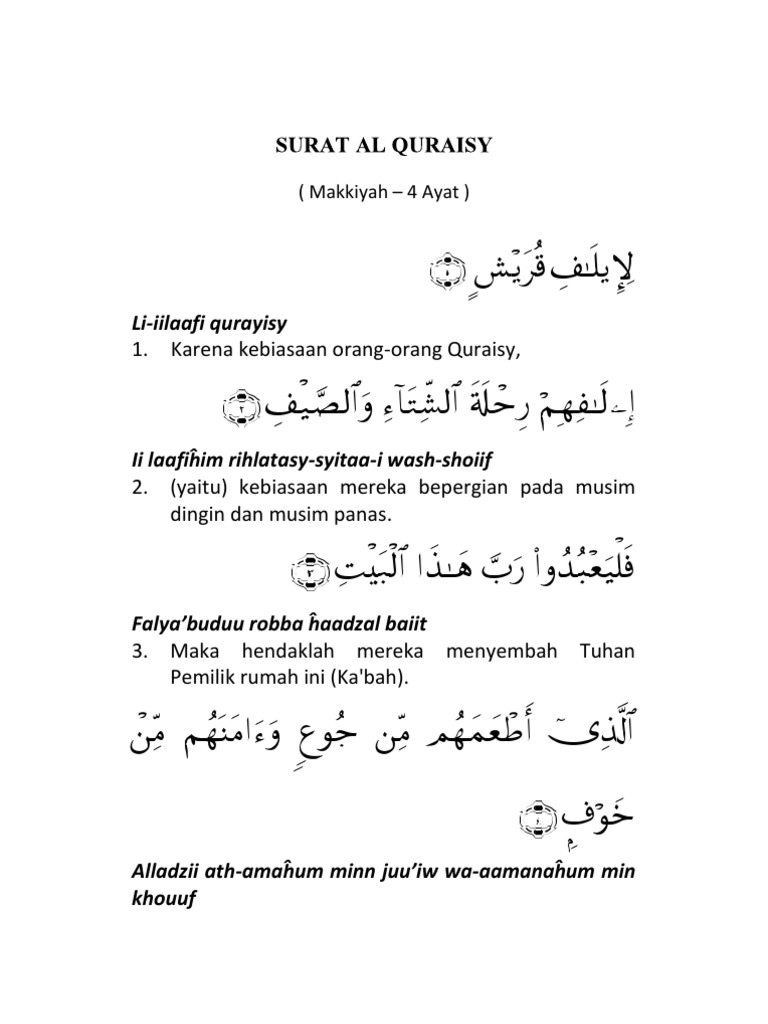 SURAT AL QURAISY
( Makkiyah – 4 Ayat )
لِإِيلَـٰفِ قُرَيْشٍ ۝١
Li-iilaafi qurayisy
1. Karena kebiasaan orang-orang Quraisy,
إِۦلَـٰفِهِمْ رِحْلَةَ ٱلشِّتَآءِ وَٱلصَّيْفِ ۝٢
Ii laafiĥim rihlatasy-syitaa-i wash-shoiif
2. (yaitu) kebiasaan mereka bepergian pada musim
dingin dan musim panas.
فَلْيَعْبُدُوا۟ رَبَّ هَـٰذَا ٱلْبَيْتِ ۝٣
Falya’buduu robba ĥaadzal baiit
3. Maka hendaklah mereka menyembah Tuhan
Pemilik rumah ini (Ka'bah).
ٱلَّذِىٓ أَطْعَمَهُم مِّن جُوعٍ وَءَامَنَهُم مِّنْ
خَوْفٍۭ ۝٤
Alladzii ath-amaĥum minn juu’iw wa-aamanaĥum min
khouuf